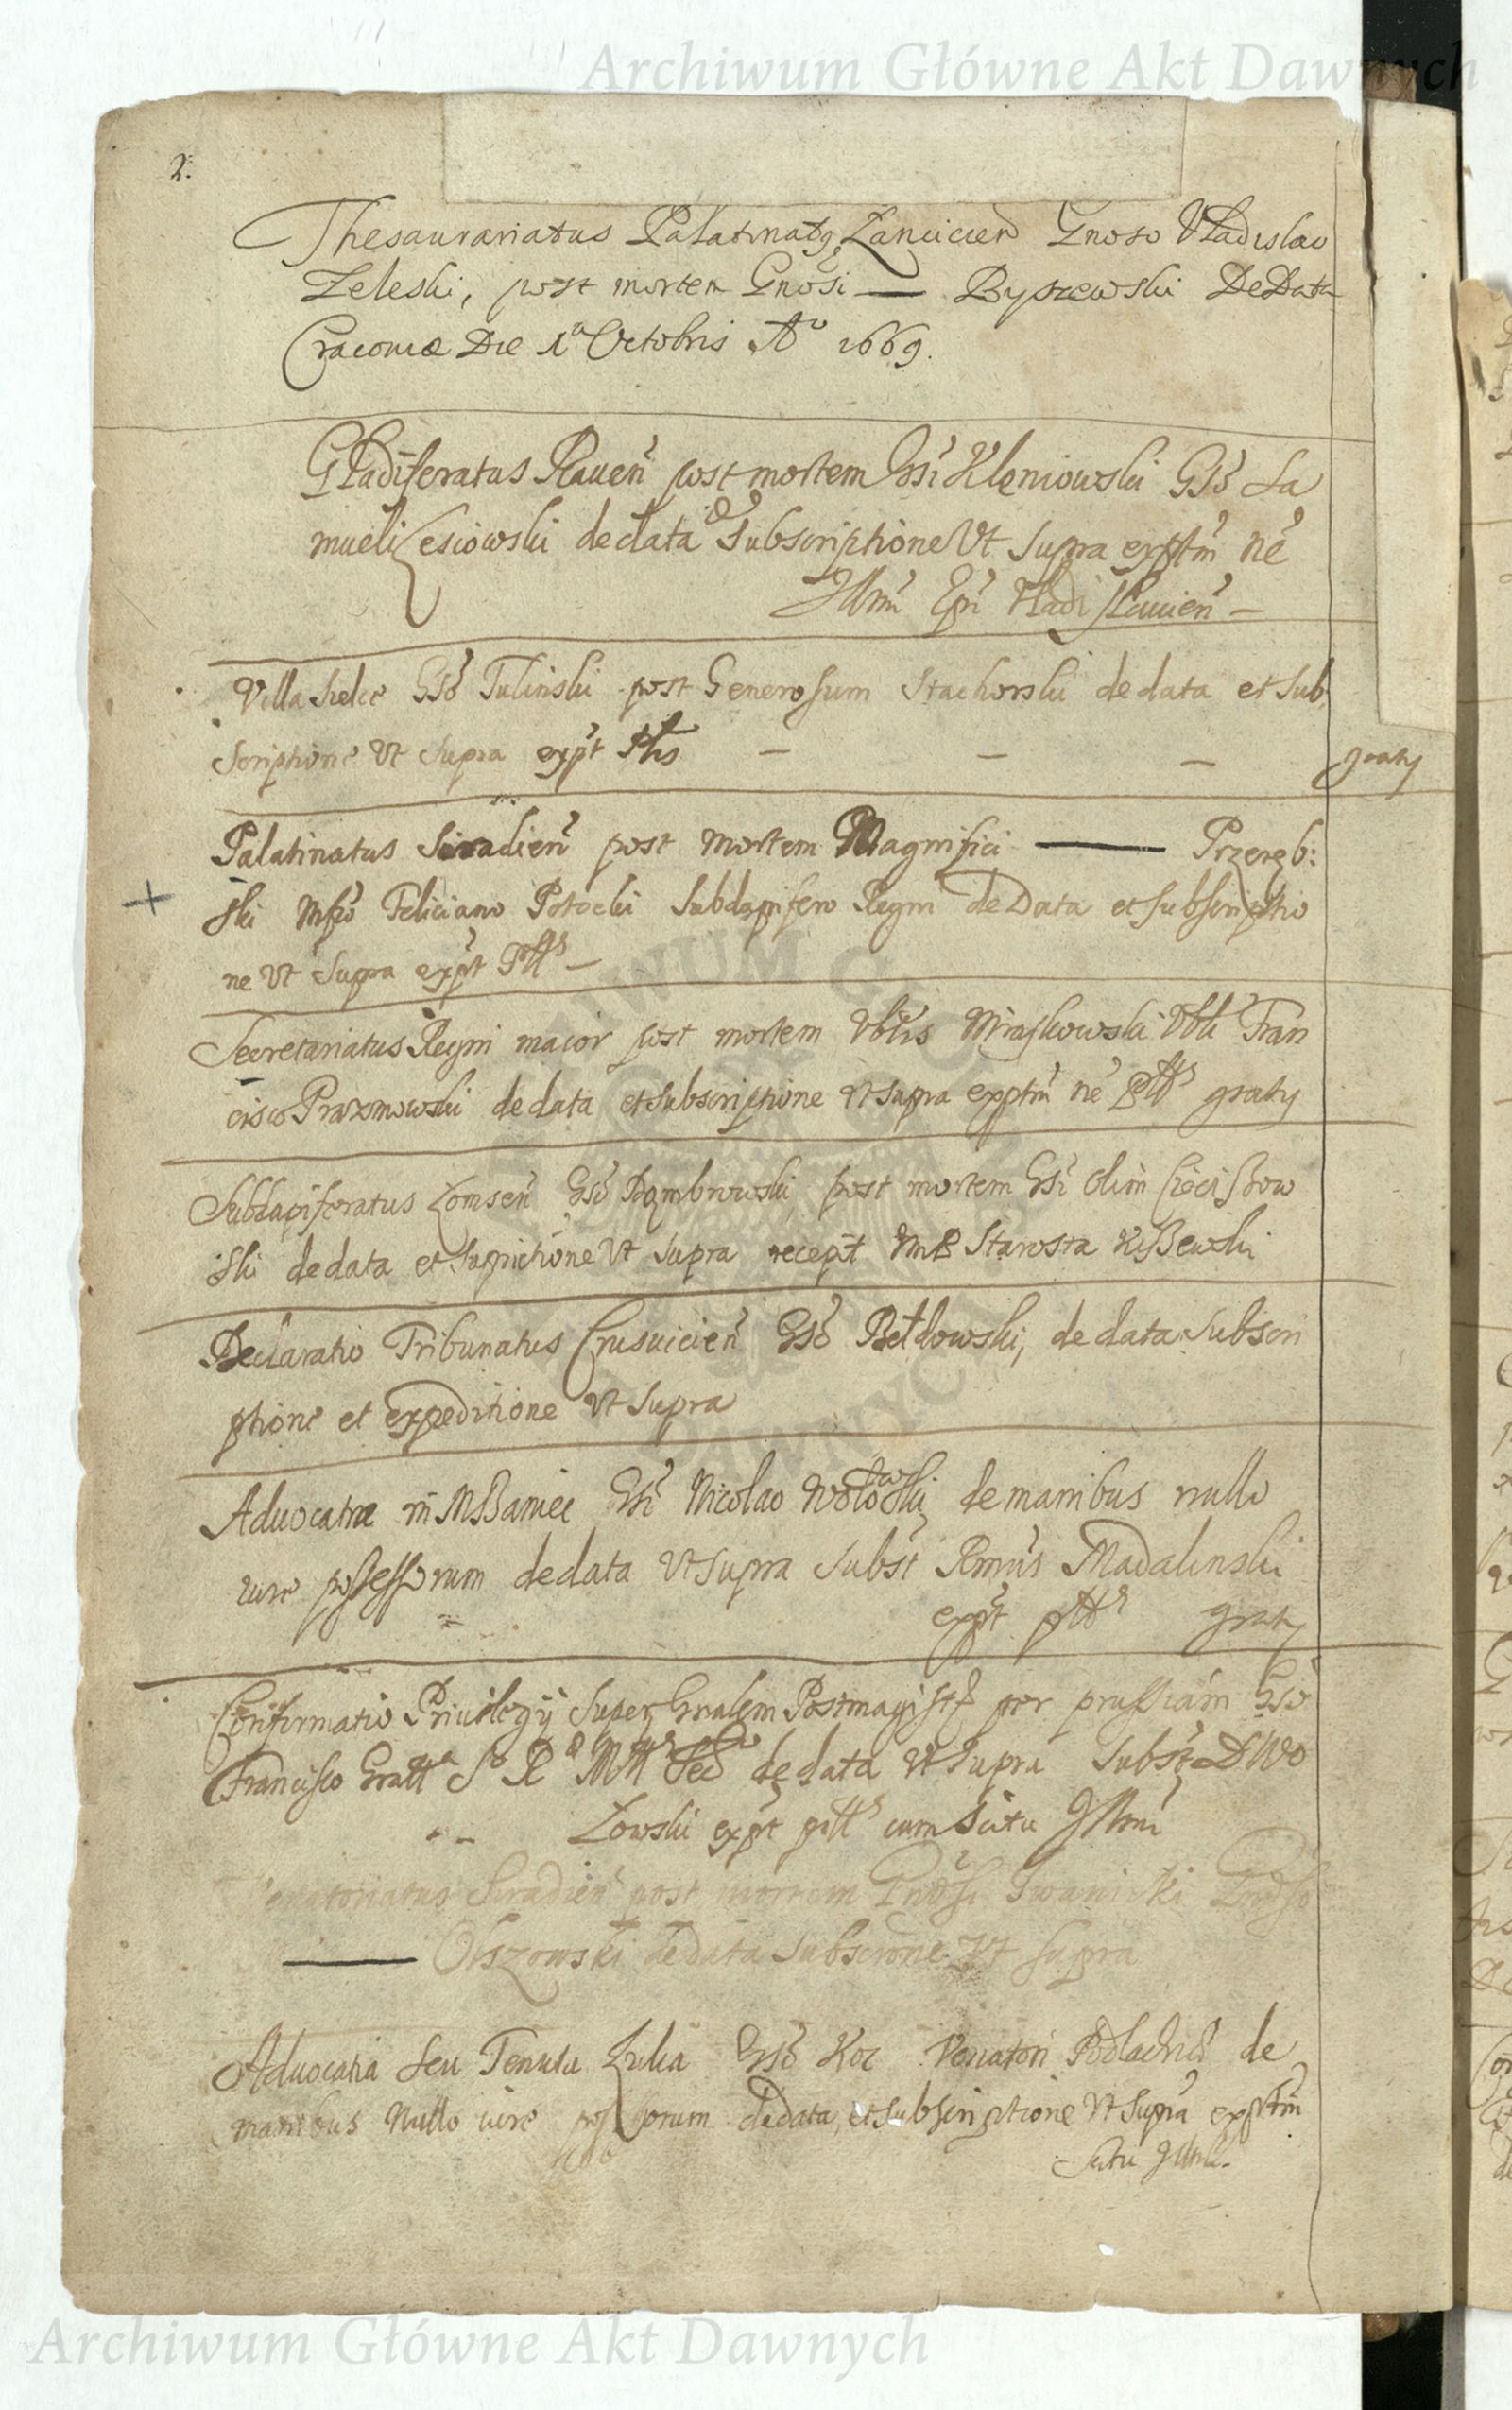 Archiwum Główne Akt Dawnych
2.
Thesaurariatus Palatinatq Lancicien Gnoso Vladislao
Zeleski, post mortem Gnosi — Byszewski De Data
Cracoviæ Die 1a Octobris Ao 1669.
Gladiferatus Rauen post mortem Gsi Kleniowski Gso Sa
mueli Lesiowski de data & Subscriptione Vt Supra exptm ne
Illmi Epi Vladislauien —
Villa Sielce Gso Tulinski post Generosum Stachorski de data et Sub
scriptione Vt Supra expt — — — gratis
Palatinatus Siradien post mortem Magnifici — Przeręb:
ski Mfco Feliciano Potocki Subdapifero Regni de Data et Subscriptio
ne Vt Supra expt —
Secretariatus Regni maior post mortem Vblis Mniskowski Vbli Fran
cisco Prazmowski de data et Subscriptione Vt Supra exptm ne gratis
Subdapiferatus Lomsen Gso Dąmbrowski, post mortem Gsi olim Ciecißow
ski de data et Vt Supra recepit Starosta Kißewski
Declaratio Tribunatus Crusuicien Gso Bełdowski, de data Subscri
ptione et expeditione Vt Supra
Aduocatiæ in Gsi Nicolao de manibus nullo
iure possessorum de data Vt Supra Subst Rmus Madalinski
expt gratis
Confirmatio Priuilegij Super Gnalem Postmagistr per prussiam Gso
Francisco Gratt S R M Sec de data Vt Supra Subst D Wo
Lowski expt cum Scitu Illmi
Venatoriatus Siradien post mortem Gnosi Iwanicki Gnoso
— Olszowski de data Subscrone Vt Supra
Aduocatia Seu Tenuta Gso Koc Venatori Podlachie de
manibus nullo iure possessorum de data, et Subscriptione Vt Supra exptm
Scitu Illmi.
Archiwum Główne Akt Dawnych